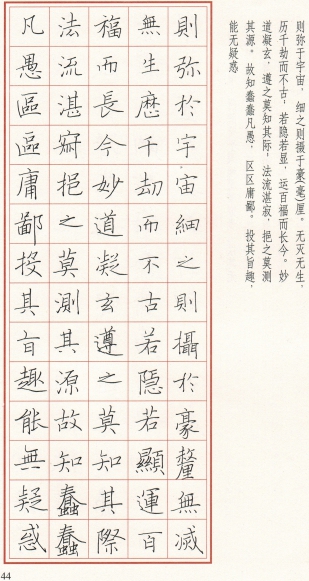 则弥于宇宙，细之则摄于豪(毫)厘。无灭无生，
历千劫而不古，若隐若显，运百福而长今。妙
道凝玄，遵之莫知其际，法流湛寂，挹之莫测
其源。故知蠢蠢凡愚，区区庸鄙。投其旨趣，
能无疑惑
則弥於宇宙細之則攝於豪釐無滅
無生歷千劫而不古若隱若顯運百
福而長今妙道凝玄遵之莫知其際
法流湛寂挹之莫測其源故知蠢蠢
凡愚區區庸鄙投其旨趣能無疑惑
44